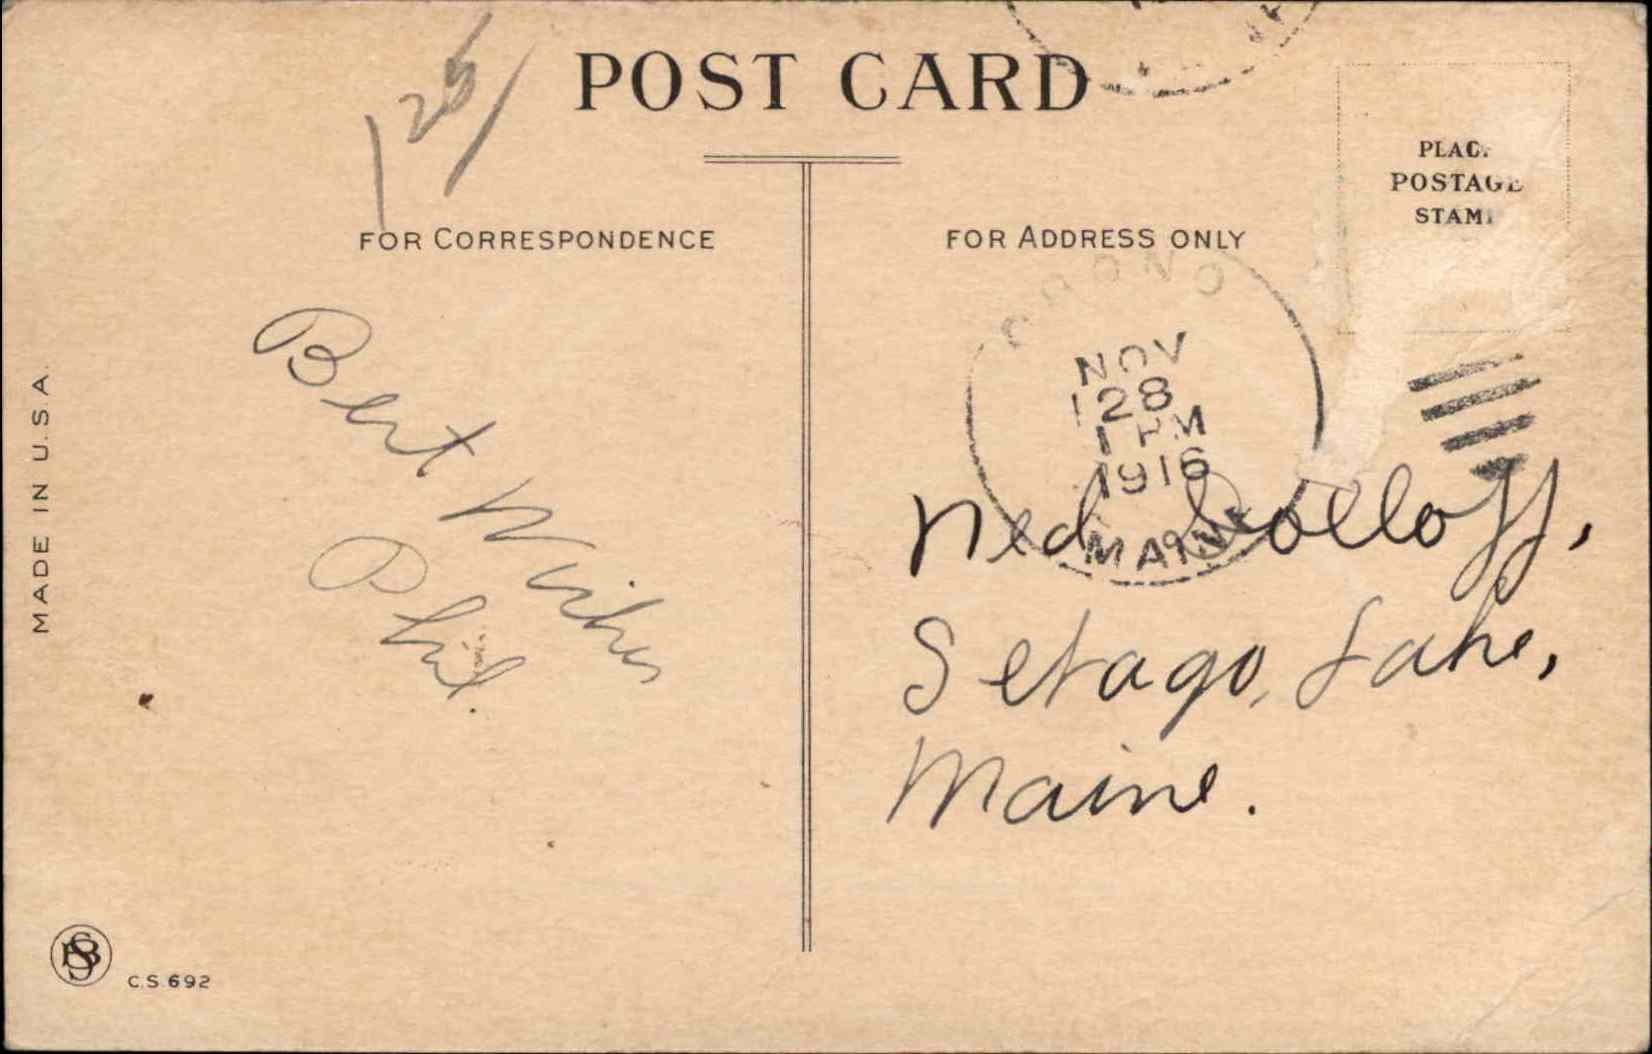 POST CARD
125/
PLACE
POSTAGE
STAMP
FOR CORRESPONDENCE
FOR ADDRESS ONLY
ORONO
NOV
28
1 PM
1916
MAINE
Best Wishes
Phil.
Ned Colloff,
Sebago, Lake,
Maine.
MADE IN U.S.A.
C.S. 692